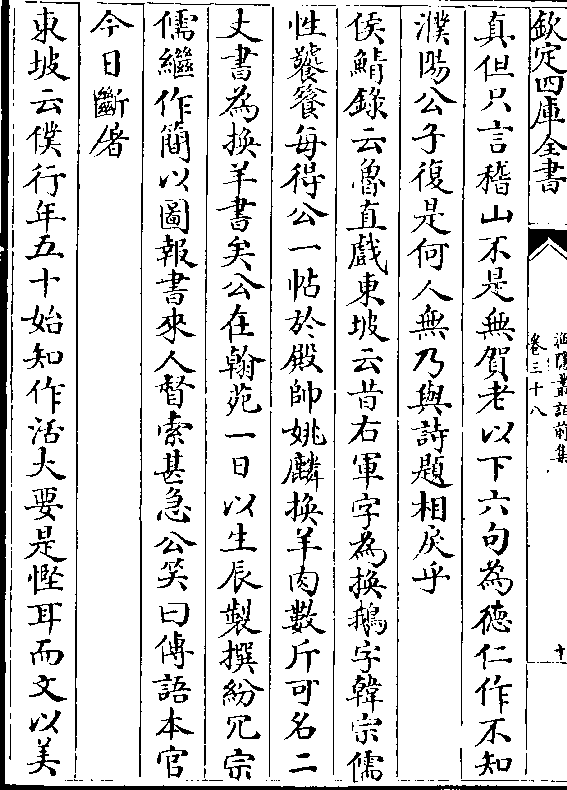 欽定四庫全書
漁隱叢話前集
卷三十八
十
真但只言稽山不是無賀老以下六句為德仁作不知
濮陽公子復是何人無乃與詩題相戾乎
侯鯖錄云魯直戲東坡云昔右軍字為換鵝字韓宗儒
性饕餮每得公一帖於殿帥姚麟換羊肉數斤可名二
丈書為換羊書矣公在翰苑一日以生辰製撰紛冗宗
儒繼作簡以圖報書來人督索甚急公笑曰傳語本官
今日斷屠
東坡云僕行年五十始知作活大要是慳耳而文以美